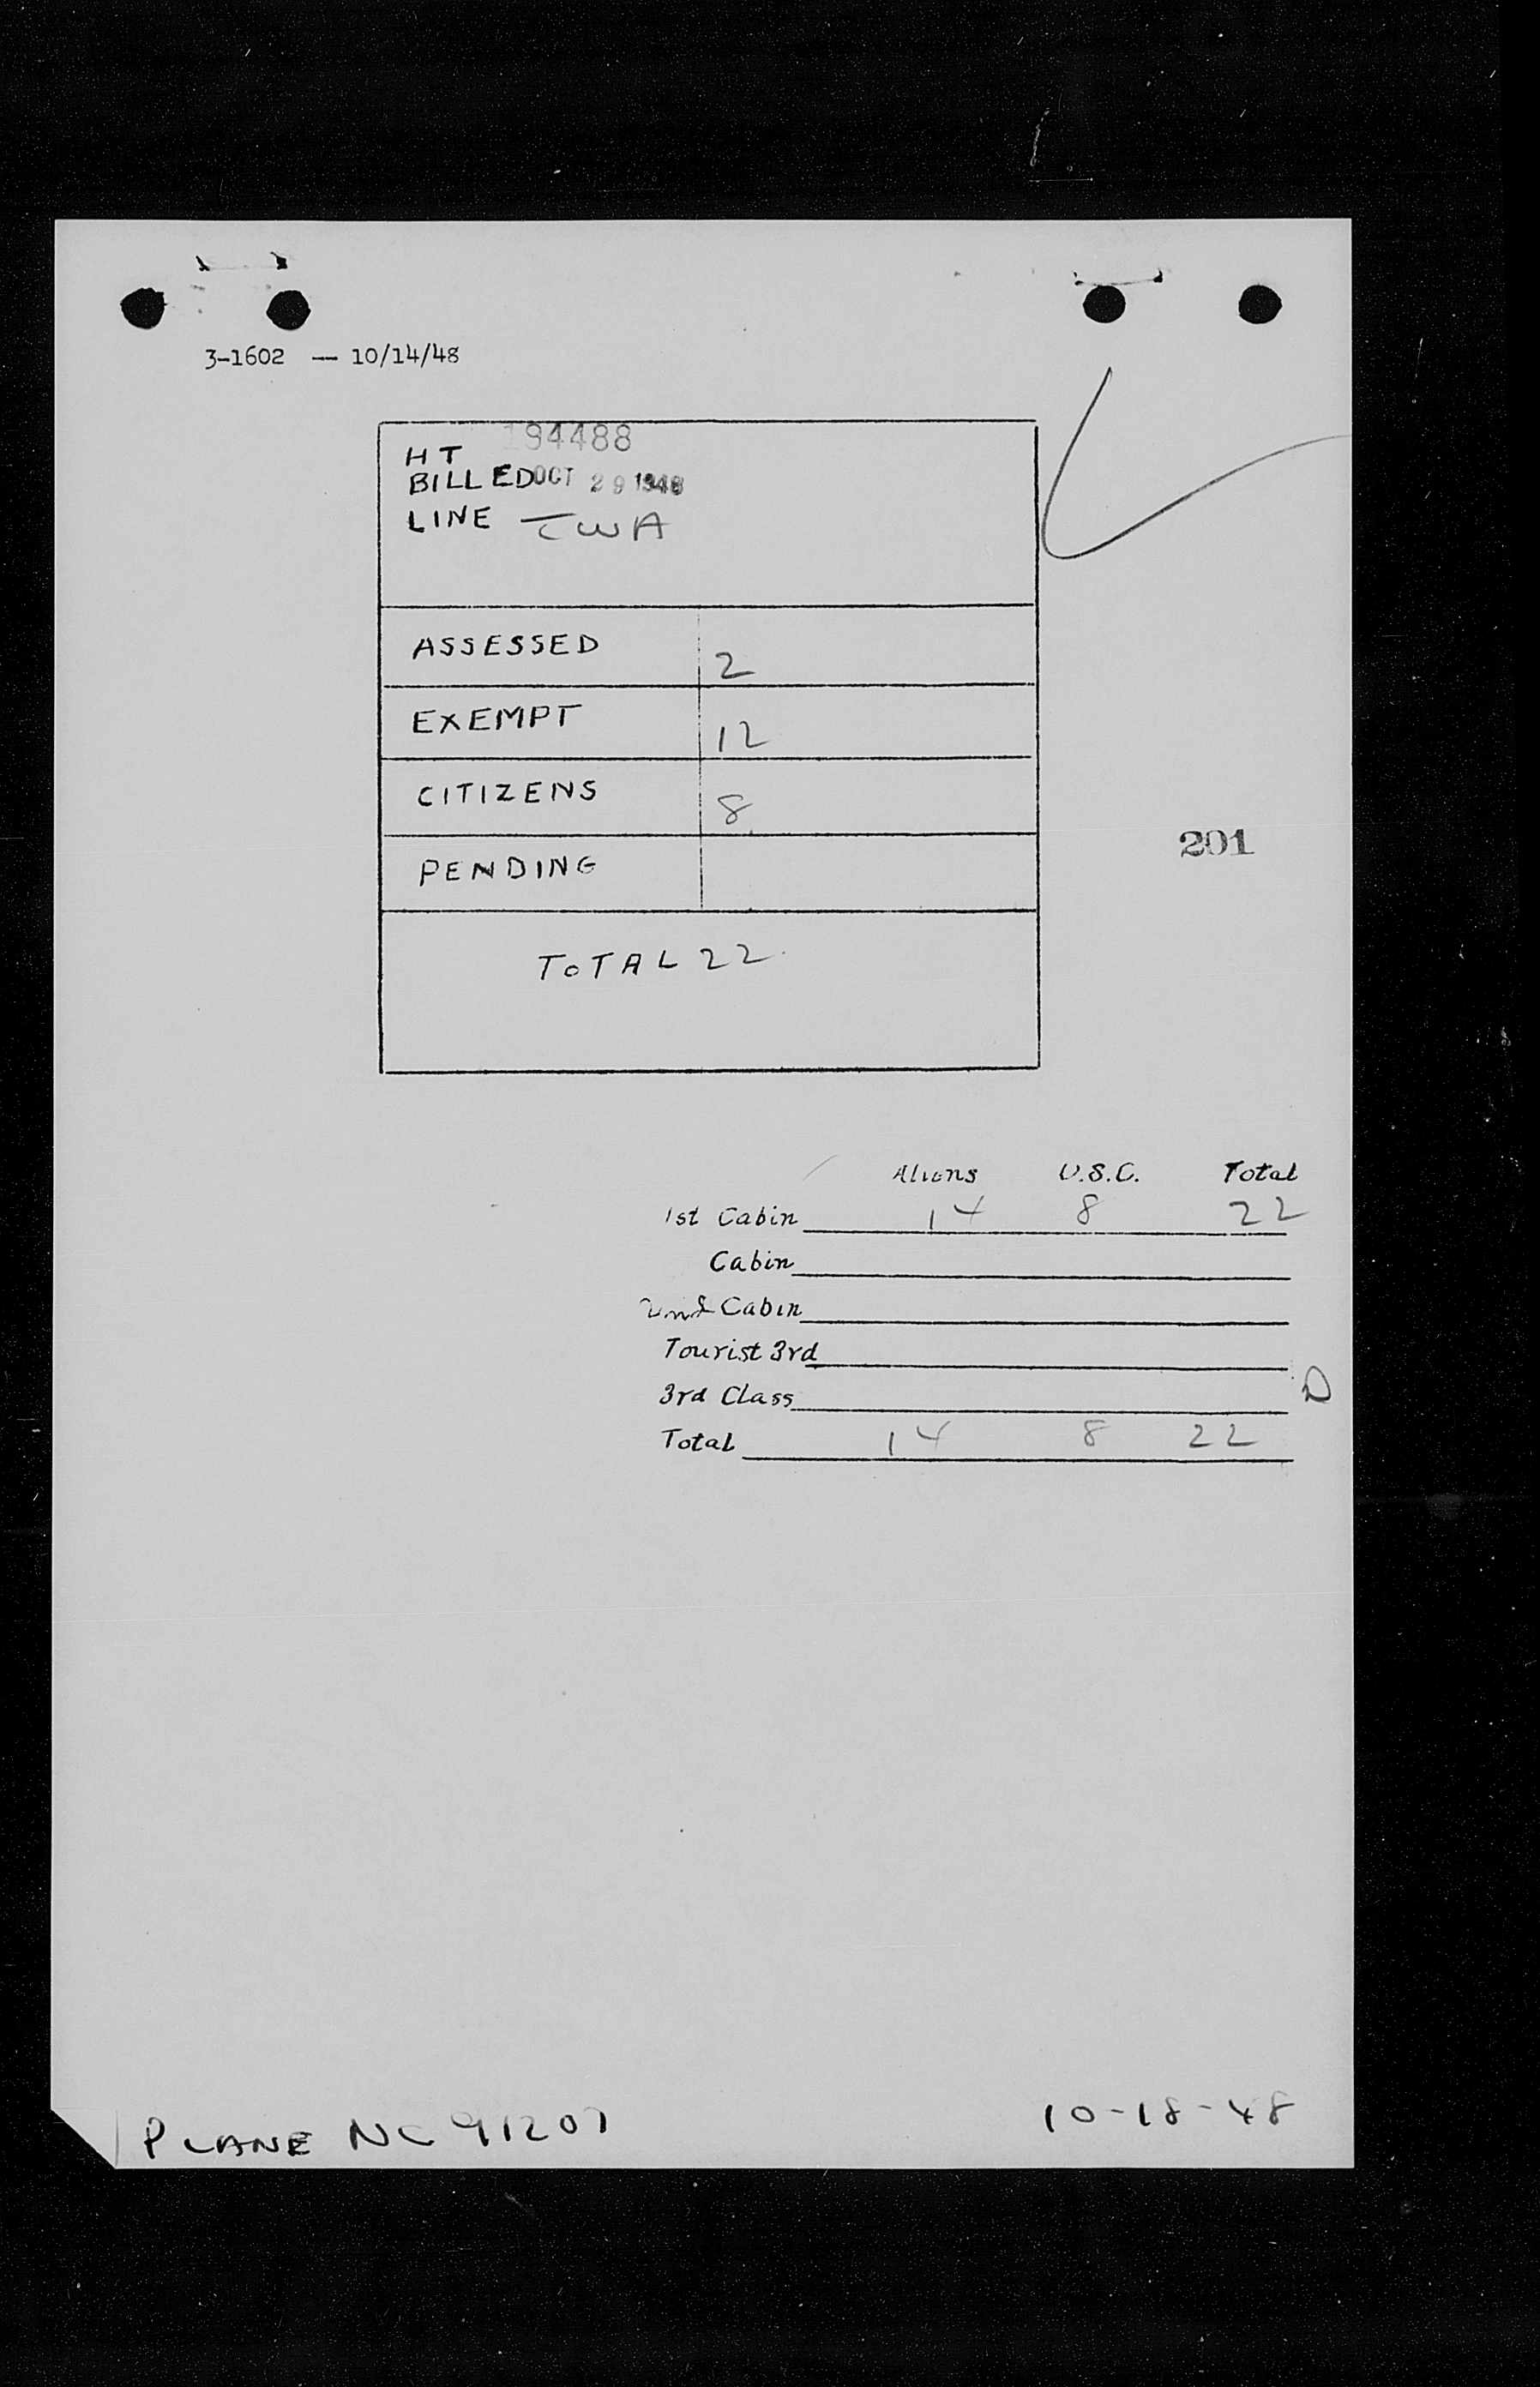 3-1602 — 10/14/48
194488
HT
BILLED OCT 29 1948
LINE TWA
ASSESSED 2
EXEMPT 12
CITIZENS 8
201
PENDING
TOTAL 22
Aliens U.S.C. Total
1st Cabin 14 8 22
Cabin
2nd Cabin
Tourist 3rd
3rd Class D
Total 14 8 22
PLANE NC 91207 10-18-48